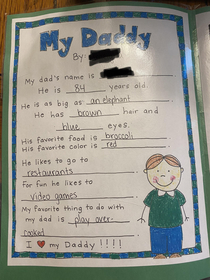 My Daddy
By
My dad's name is
He is 84 years old.
He is as big as an elephant.
He has brown hair and
blue eyes.
His favorite food is broccoli
His favorite color is red
He likes to go to
restaurants.
For fun he likes to
video games
My favorite thing to do with
my dad is play over-
cooked
I ♥ my Daddy!!!!